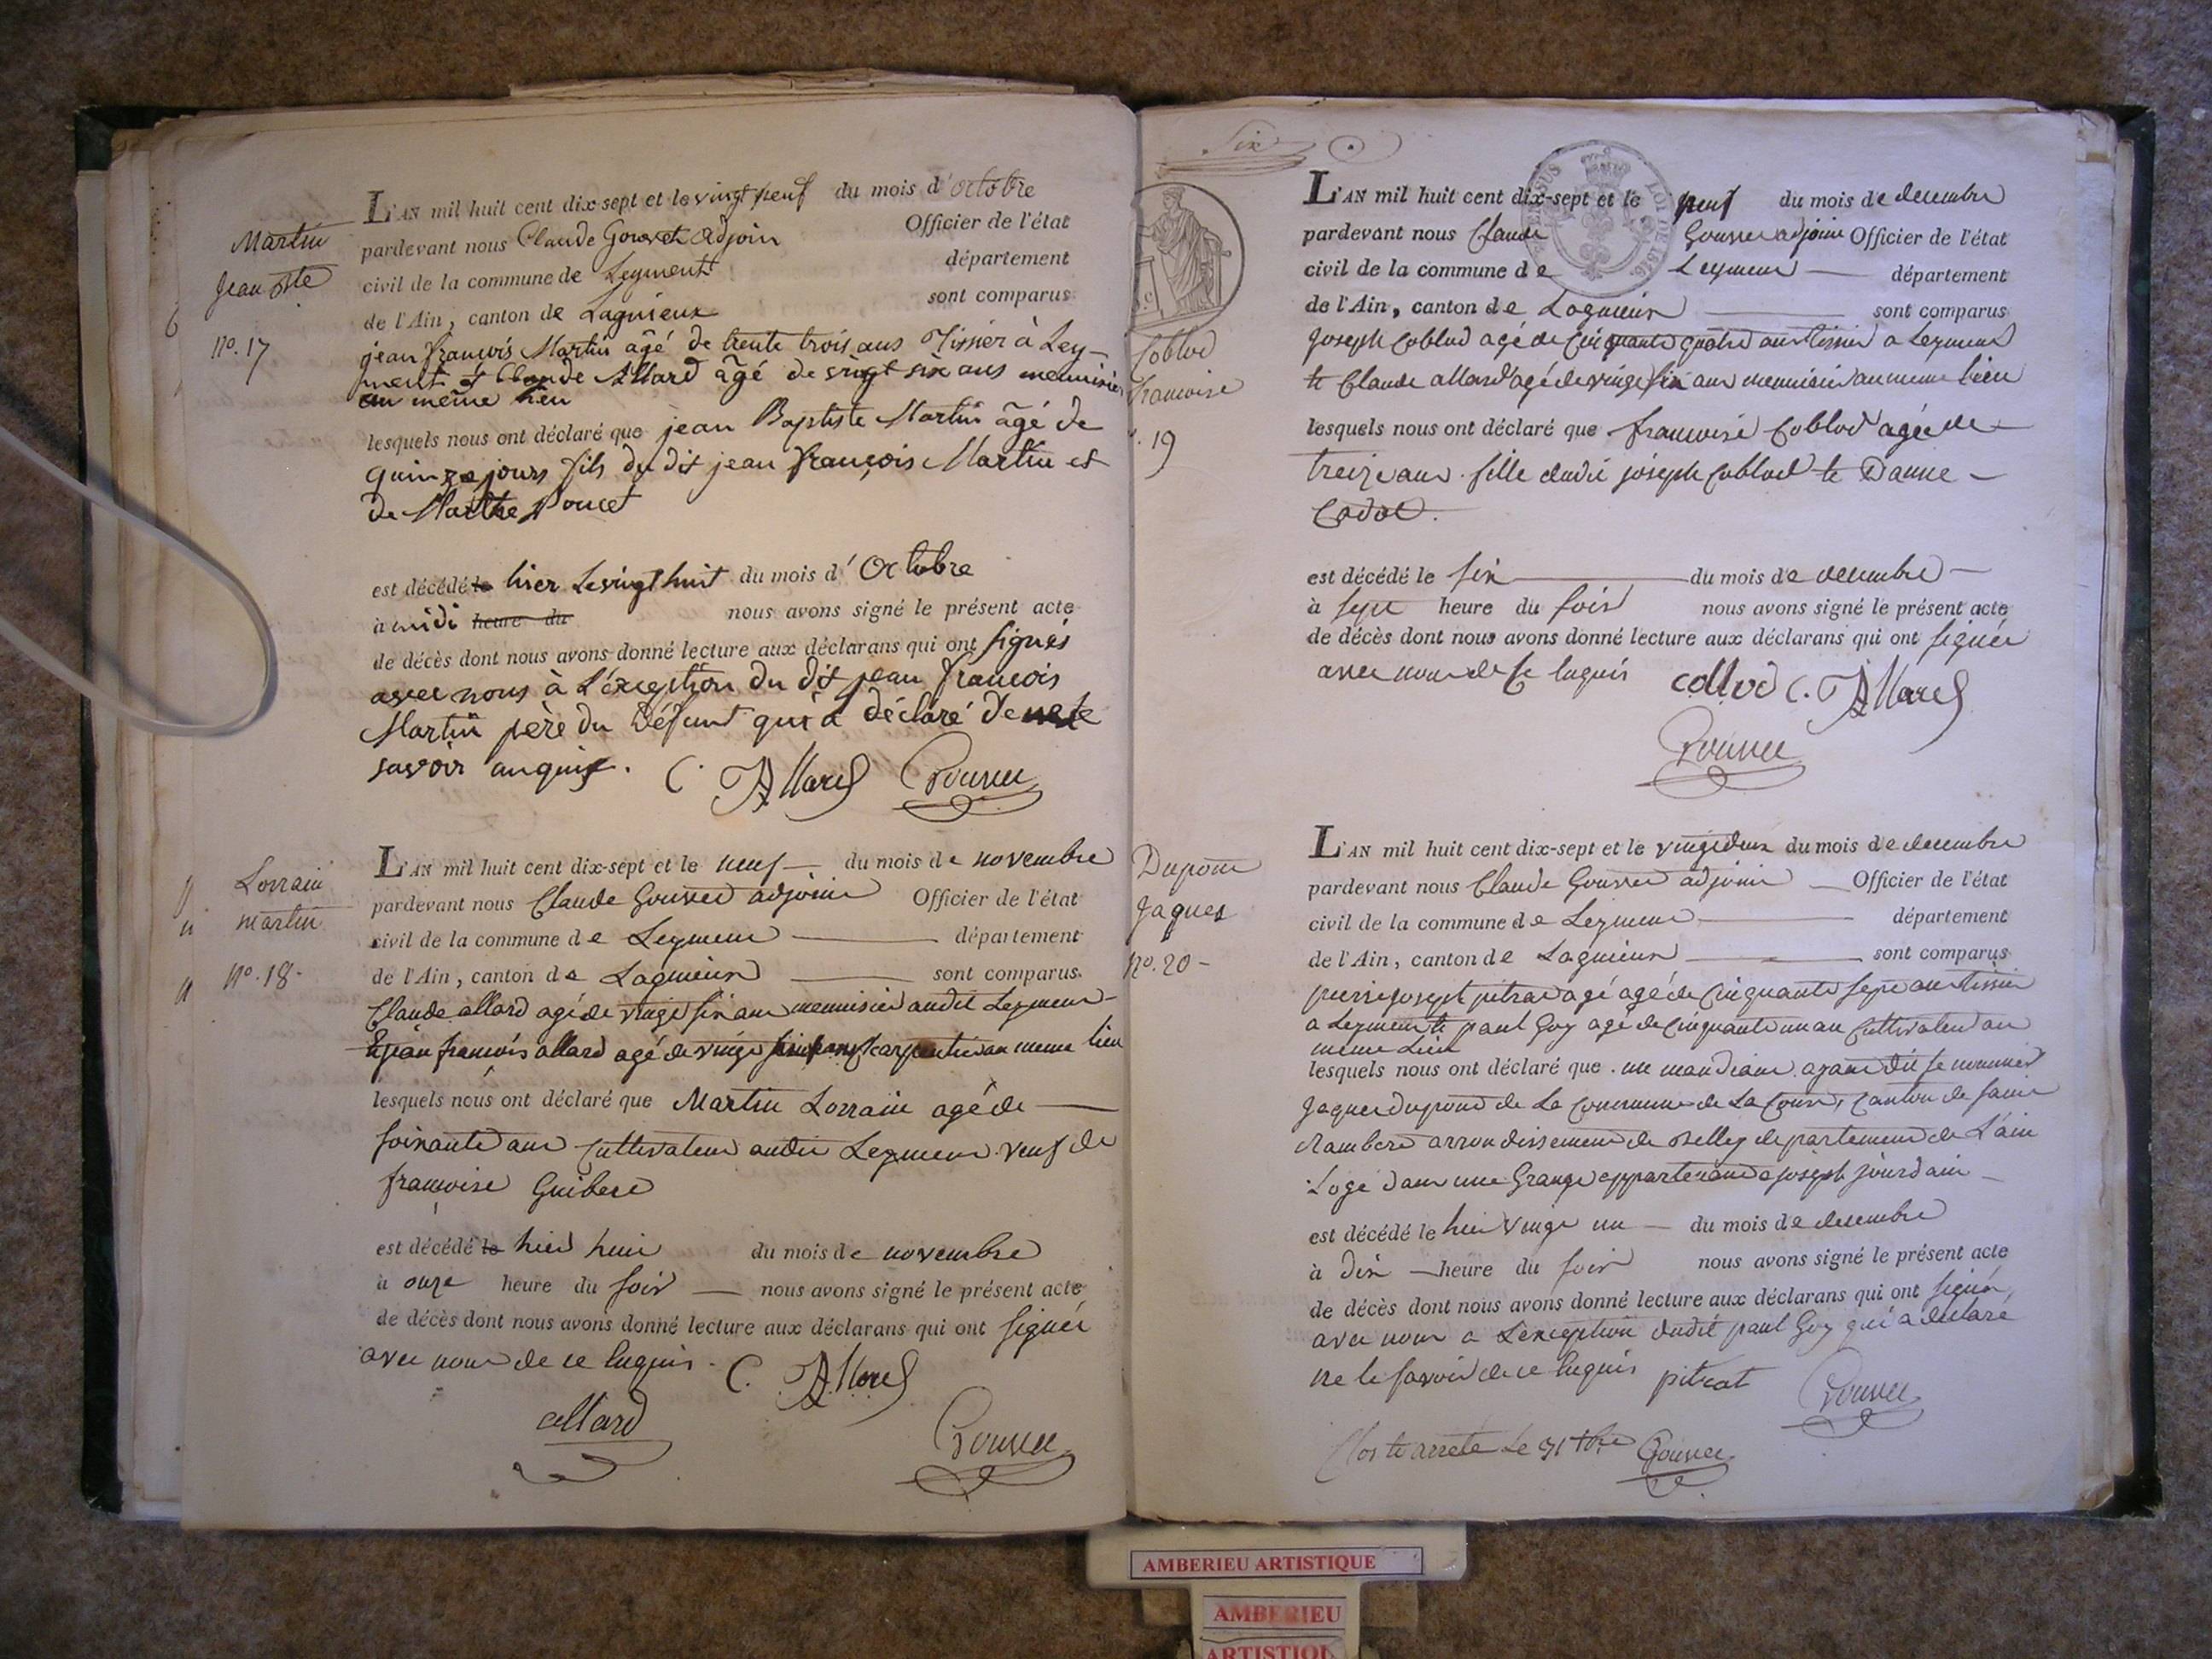 Martin
Jean Bte
No. 17
L'AN mil huit cent dix-sept et le vingt neuf du mois d'octobre
pardevant nous Claude Gouvet Adjoin Officier de l'état
civil de la commune de Leyment département
de l'Ain, canton de Lagnieux sont comparus
jean françois Martin âgé de trente trois ans Tissier à Ley-
ment et Claude Allard âgé de vingt six ans menuisier
au même lieu
lesquels nous ont déclaré que jean Baptiste Martin âgé de
quinze jours fils du dit jean françois Martin et
de Marthe Poncet
est décédé le hier Le vingt huit du mois d'Octobre
à midi heure du nous avons signé le présent acte
de décès dont nous avons donné lecture aux déclarans qui ont signés
avec nous à L'éxception du dit jean françois
Martin père du défunt qui a déclaré de ne le
savoir anquis.
C. Allard Gouvet
Lorrain
martin
No. 18-
L'AN mil huit cent dix-sept et le neuf du mois de novembre
pardevant nous Claude Gouvet adjoint Officier de l'état
civil de la commune de Leyment département
de l'Ain, canton de Lagnieux sont comparus
Claude allard agé de vingt six ans menuisier audit Leyment
Et jean françois allard agé de vingt carpentier au meme lieu
lesquels nous ont déclaré que Martin Lorrain agé de
soixante ans Cultivateur audit Leyment veuf de
françoise Guibert
est décédé le hier huit du mois de novembre
à onze heure du soir nous avons signé le présent acte
de décès dont nous avons donné lecture aux déclarans qui ont signés
avec nous de ce Enquis. C. Allard
allard
Gouvet
Six
LOI DE 1816
Collod
francoise
. 19
L'AN mil huit cent dix-sept et le neuf du mois de decembre
pardevant nous Claude Gouvet adjoint Officier de l'état
civil de la commune de Leyment département
de l'Ain, canton de Lagnieux sont comparus
joseph Collod agé de Cinquante quatre ans tissier a Leyment
et Claude allard agé de vingt six ans menuisier au meme lieu
lesquels nous ont déclaré que francoise Collod agée de
treize ans fille dudit joseph Collod et Danne
est décédé le six du mois de decembre
à sept heure du soir nous avons signé le présent acte
de décès dont nous avons donné lecture aux déclarans qui ont signés
avec nous de ce Enquis collod C. Allard
Gouvet
Dupont
Jaques
No. 20-
L'AN mil huit cent dix-sept et le vingt deux du mois de decembre
pardevant nous Claude Gouvet adjoint Officier de l'état
civil de la commune de Leyment département
de l'Ain, canton de Lagnieux sont comparus
pierre joseph pitrat agé agé de Cinquante sept ans tissier
a Leyment et paul Goy agé de Cinquante un an Cultivateur au
meme Lieu
lesquels nous ont déclaré que un mandiant ayant dit se nommer
Jaques dupont de La Commune de La Canton de saint
Rambert arrondissement de Belley departement de L'ain
Logé dans une Grange appartenant a joseph jourdain
est décédé le hier vingt un du mois de decembre
à dix heure du soir nous avons signé le présent acte
de décès dont nous avons donné lecture aux déclarans qui ont signés
avec nous a L'exception dudit paul Goy qui a declaré
ne le savoir de ce Enquis pitrat Gouvet
Clos et arrêté Le 31 Xbre Gouvet
AMBERIEU ARTISTIQUE
AMBERIEU
ARTISTIQU